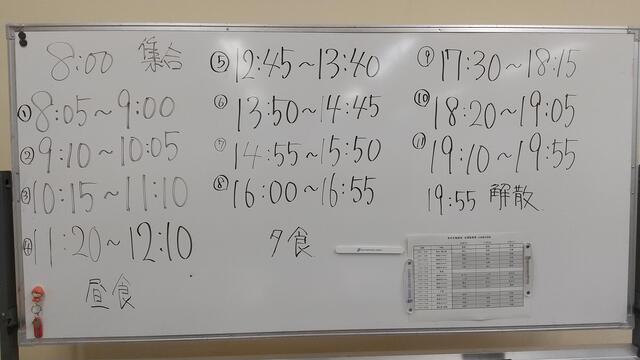 8:00 集合
①8:05~9:00
②9:10~10:05
③10:15~11:10
④11:20~12:10
昼食
⑤12:45~13:40
⑥13:50~14:45
⑦14:55~15:50
⑧16:00~16:55
夕食
⑨17:30~18:15
⑩18:20~19:05
⑪19:10~19:55
19:55 解散